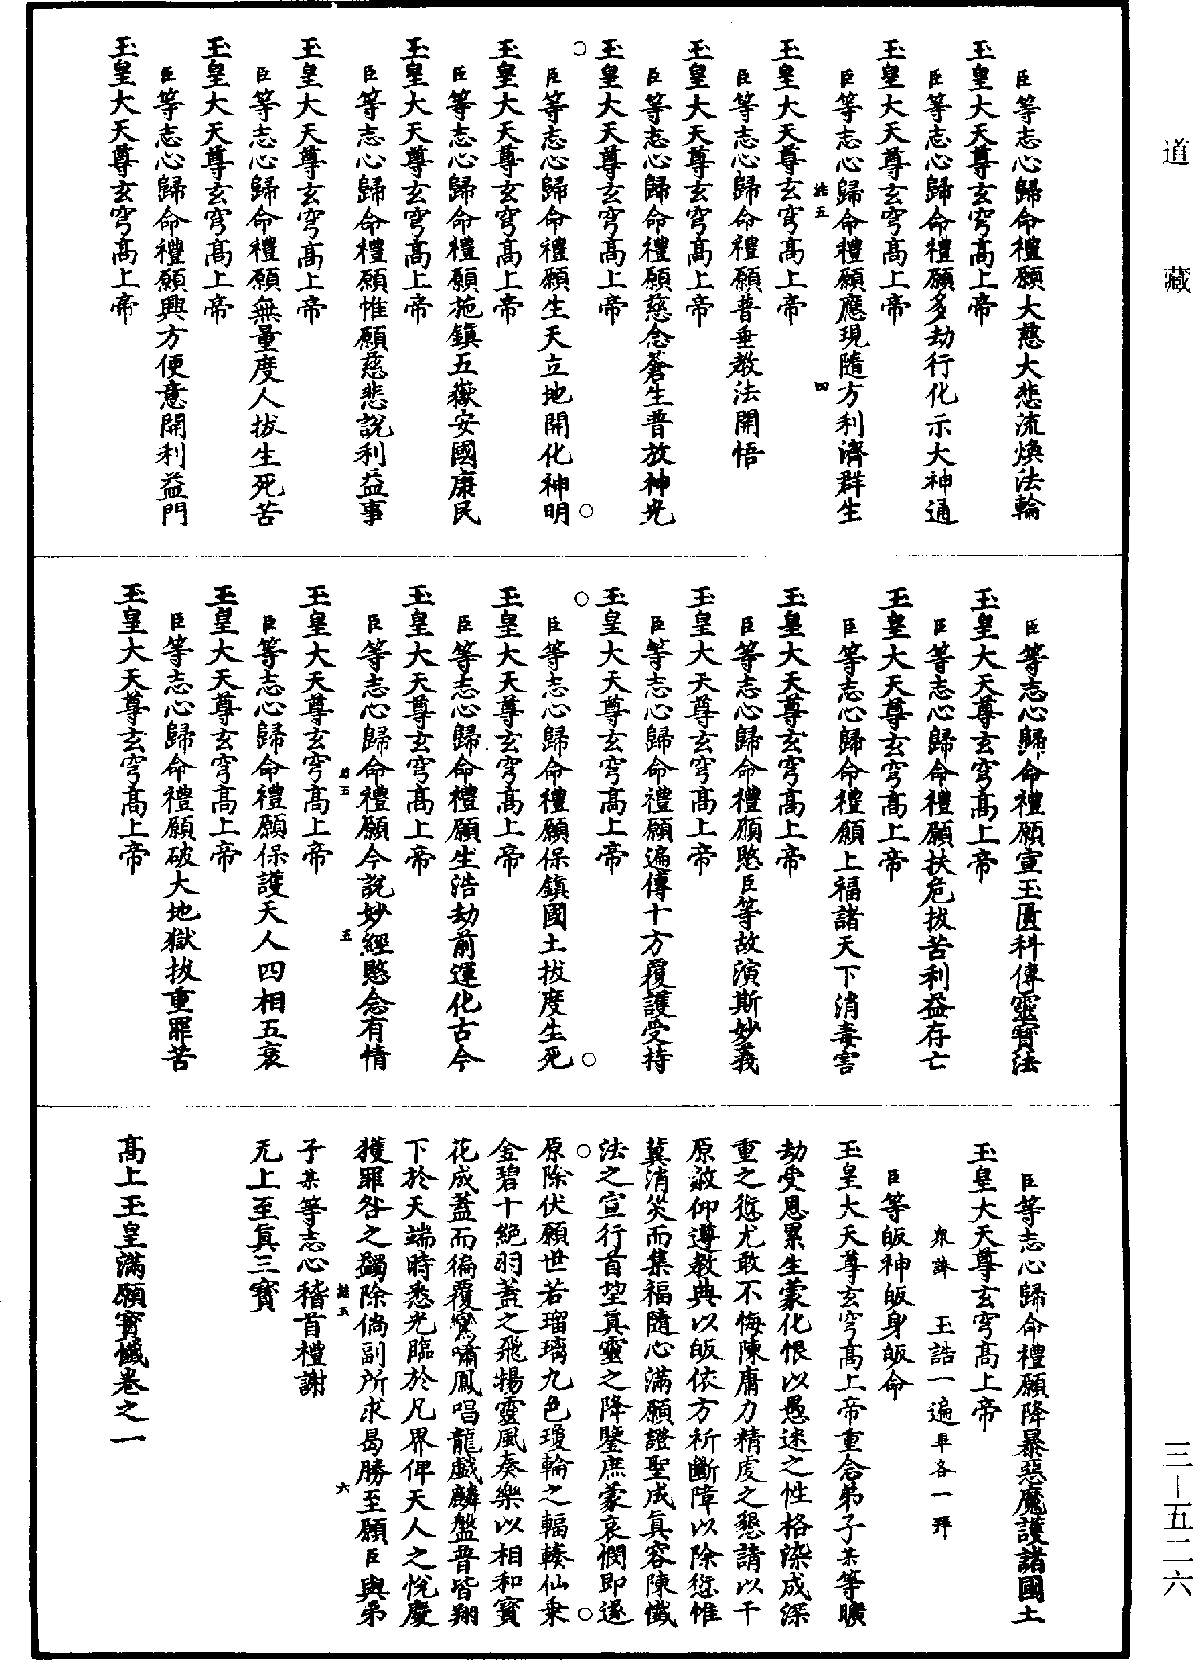 道藏
臣等志心歸命禮願大慈大悲流煥法輪
玉皇大天尊玄穹高上帝
臣等志心歸命禮願多劫行化示大神通
玉皇大天尊玄穹高上帝
臣等志心歸命禮願應現隨方利濟群生
四
玉皇大天尊玄穹高上帝
臣等志心歸命禮願普垂教法開悟
玉皇大天尊玄穹高上帝
臣等志心歸命禮願慈念蒼生普放神光
玉皇大天尊玄穹高上帝
臣等志心歸命禮願生天立地開化神明
玉皇大天尊玄穹高上帝
臣等志心歸命禮願施鎮五嶽安國康民
玉皇大天尊玄穹高上帝
臣等志心歸命禮願惟願慈悲說利益事
玉皇大天尊玄穹高上帝
臣等志心歸命禮願無量度人拔生死苦
玉皇大天尊玄穹高上帝
臣等志心歸命禮願興方便意開利益門
玉皇大天尊玄穹高上帝
臣等志心歸命禮願宣玉匱科傳靈寶法
玉皇大天尊玄穹高上帝
臣等志心歸命禮願扶危拔苦利益存亡
玉皇大天尊玄穹高上帝
臣等志心歸命禮願上福諸天下消毒害
玉皇大天尊玄穹高上帝
臣等志心歸命禮願愍臣等故演斯妙義
玉皇大天尊玄穹高上帝
臣等志心歸命禮願遍傳十方覆護受持
玉皇大天尊玄穹高上帝
臣等志心歸命禮願保鎮國土拔度生死
玉皇大天尊玄穹高上帝
臣等志心歸命禮願生浩劫前運化古今
玉皇大天尊玄穹高上帝
臣等志心歸命禮願今說妙經愍念有情
五
玉皇大天尊玄穹高上帝
臣等志心歸命禮願保護天人四相五衰
玉皇大天尊玄穹高上帝
臣等志心歸命禮願破大地獄拔重罪苦
玉皇大天尊玄穹高上帝
臣等志心歸命禮願降暴惡魔護諸國土
玉皇大天尊玄穹高上帝
衆誦 玉誥一遍畢各一拜
臣等皈神皈身皈命
玉皇大天尊玄穹高上帝重念弟子某等曠
劫受恩累生蒙化恨以愚迷之性格染成深
重之愆尤敢不悔陳庸力精虔之懇請以干
原敬仰遵教典以皈依方祈斷障以除愆惟
冀消災而集福隨心滿願證聖成真容陳懺
法之宣行首望真靈之降鑒庶蒙哀憫即遂
原除伏願世若瑠璃九色瓊輪之輻輳仙乗
金碧十絶羽蓋之飛揚靈風奏樂以相和寳
花成蓋而徧覆鸞嘯鳳唱龍戲麟盤普皆翔
下於天端時悉光臨於凡界俾天人之悅慶
獲罪咎之蠲除倘副所求曷勝至願臣與弟
六
子某等志心稽首禮謝
无上至真三寳
高上玉皇滿願寳懺卷之一
三—五二六